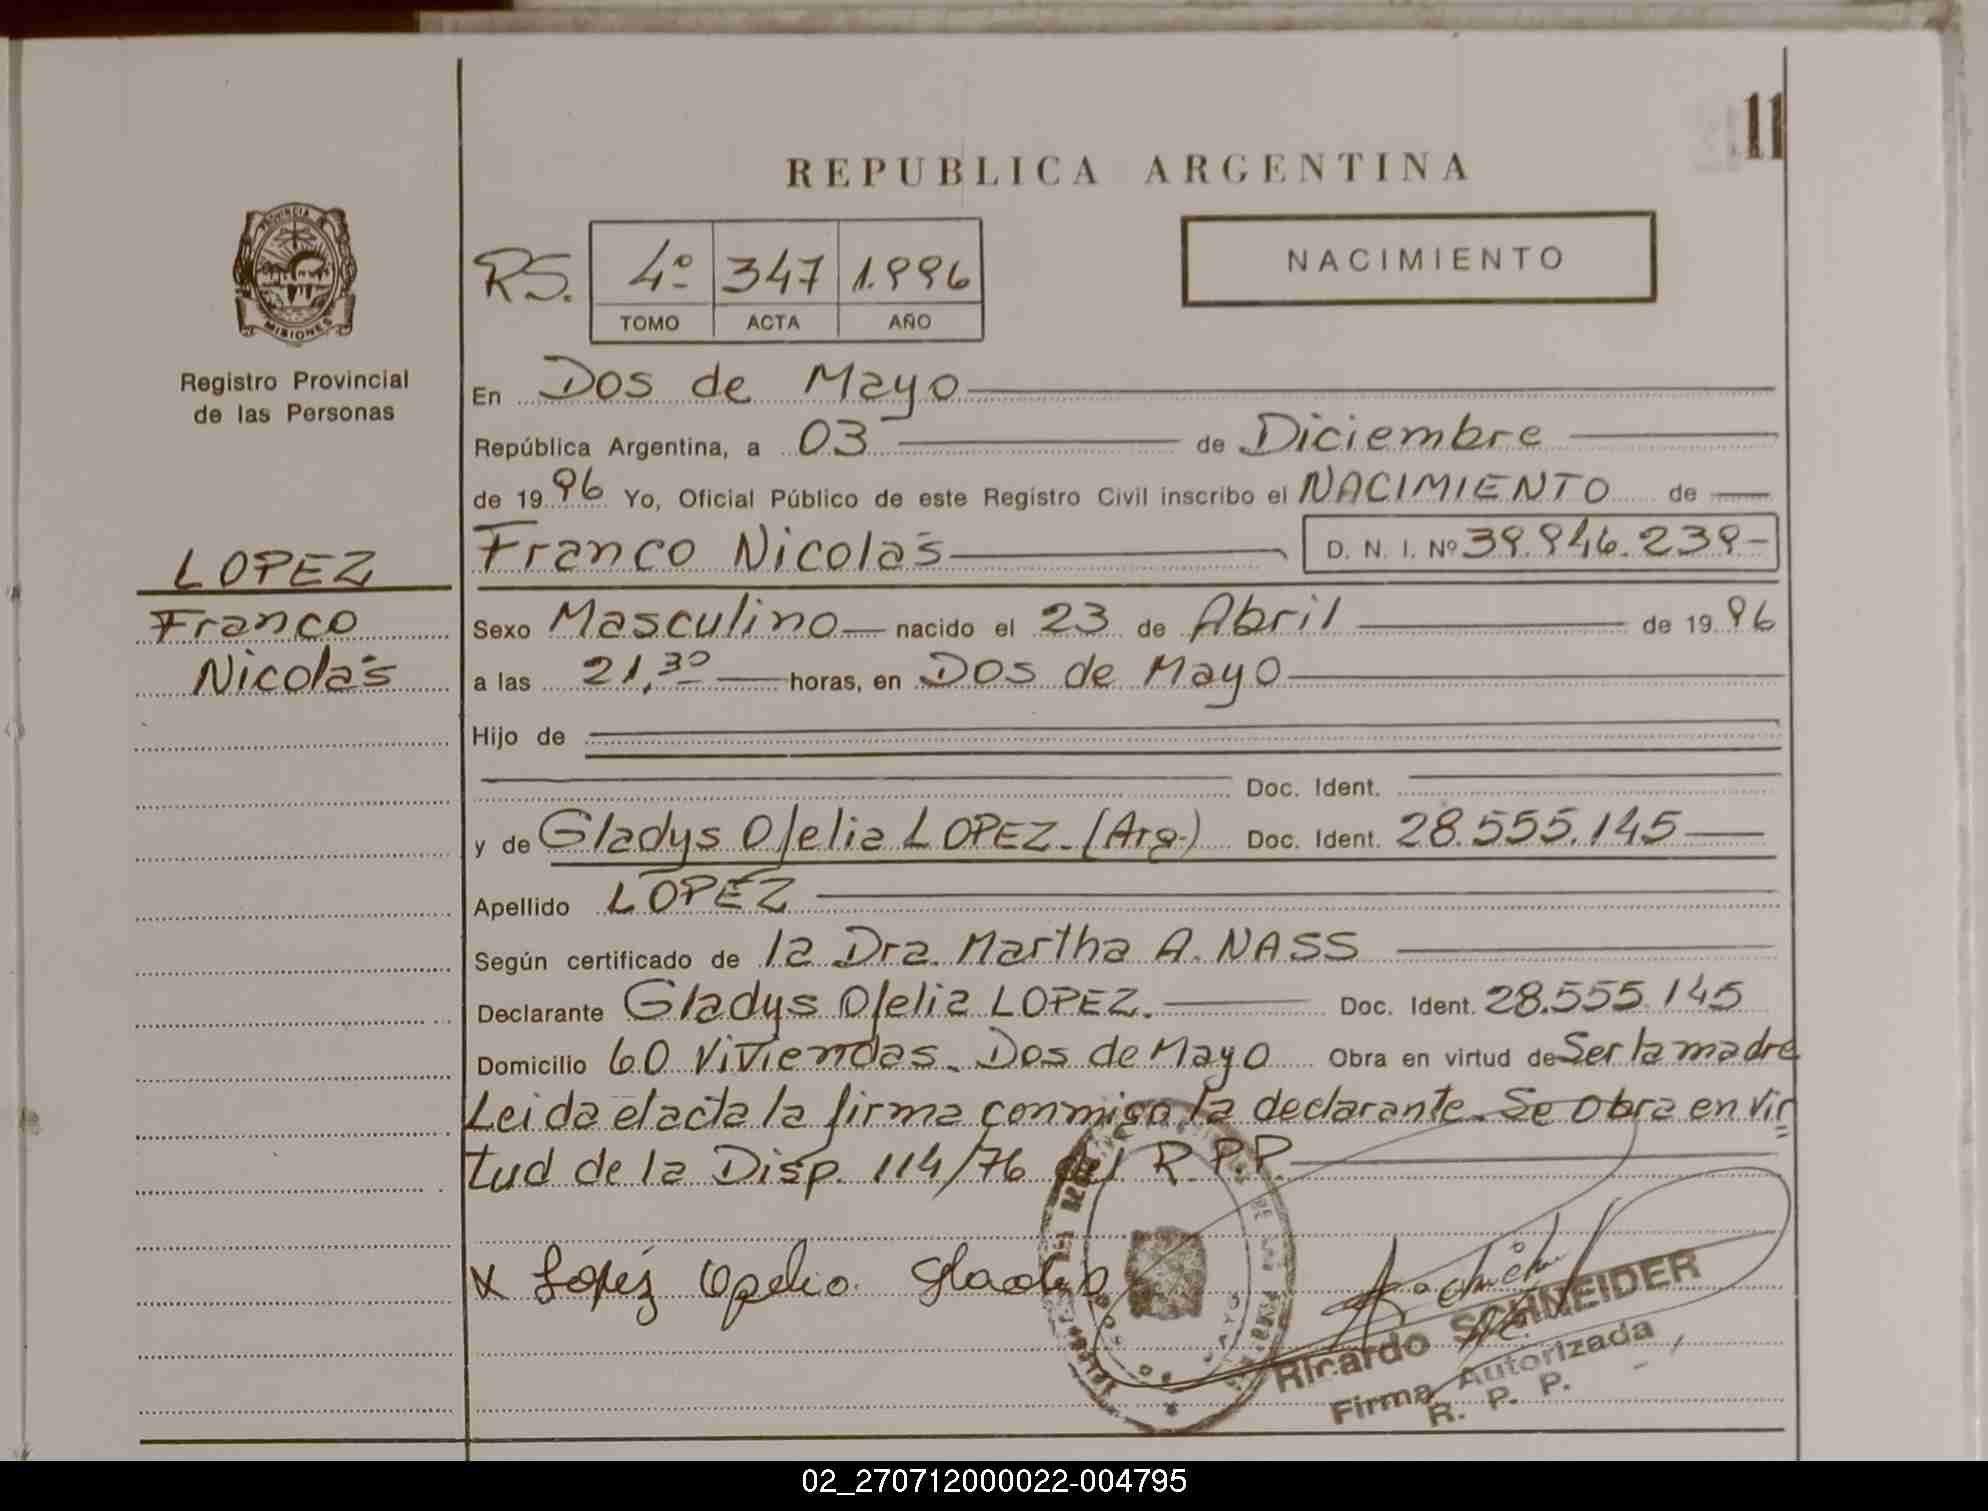 11
REPUBLICA ARGENTINA
PROVINCIA DE
MISIONES
Registro Provincial
de las Personas
RS. 4º 347 1.996
TOMO ACTA AÑO
NACIMIENTO
En Dos de Mayo
República Argentina, a 03 de Diciembre
de 1996 Yo, Oficial Público de este Registro Civil inscribo el NACIMIENTO de
LOPEZ
Franco
Nicolás
Franco Nicolás D. N. I. Nº 39.946.239-
Sexo Masculino nacido el 23 de Abril de 1996
a las 21,30 horas, en Dos de Mayo
Hijo de
Doc. Ident.
y de Gladys Ofelia LOPEZ.-(Arg.) Doc. Ident. 28.555.145
Apellido LOPEZ
Según certificado de la Dra. Martha A. NASS
Declarante Gladys Ofelia LOPEZ. Doc. Ident. 28.555.145
Domicilio 60 Viviendas. Dos de Mayo Obra en virtud de Ser la madre
Leida el acta la firma conmigo la declarante. Se obra en vir
tud de la Disp. 114/76 del R.P.P.
x Lopéz Ofelia Gladis
Ricardo SCHNEIDER
Firma Autorizada
R. P. P.
02_270712000022-004795